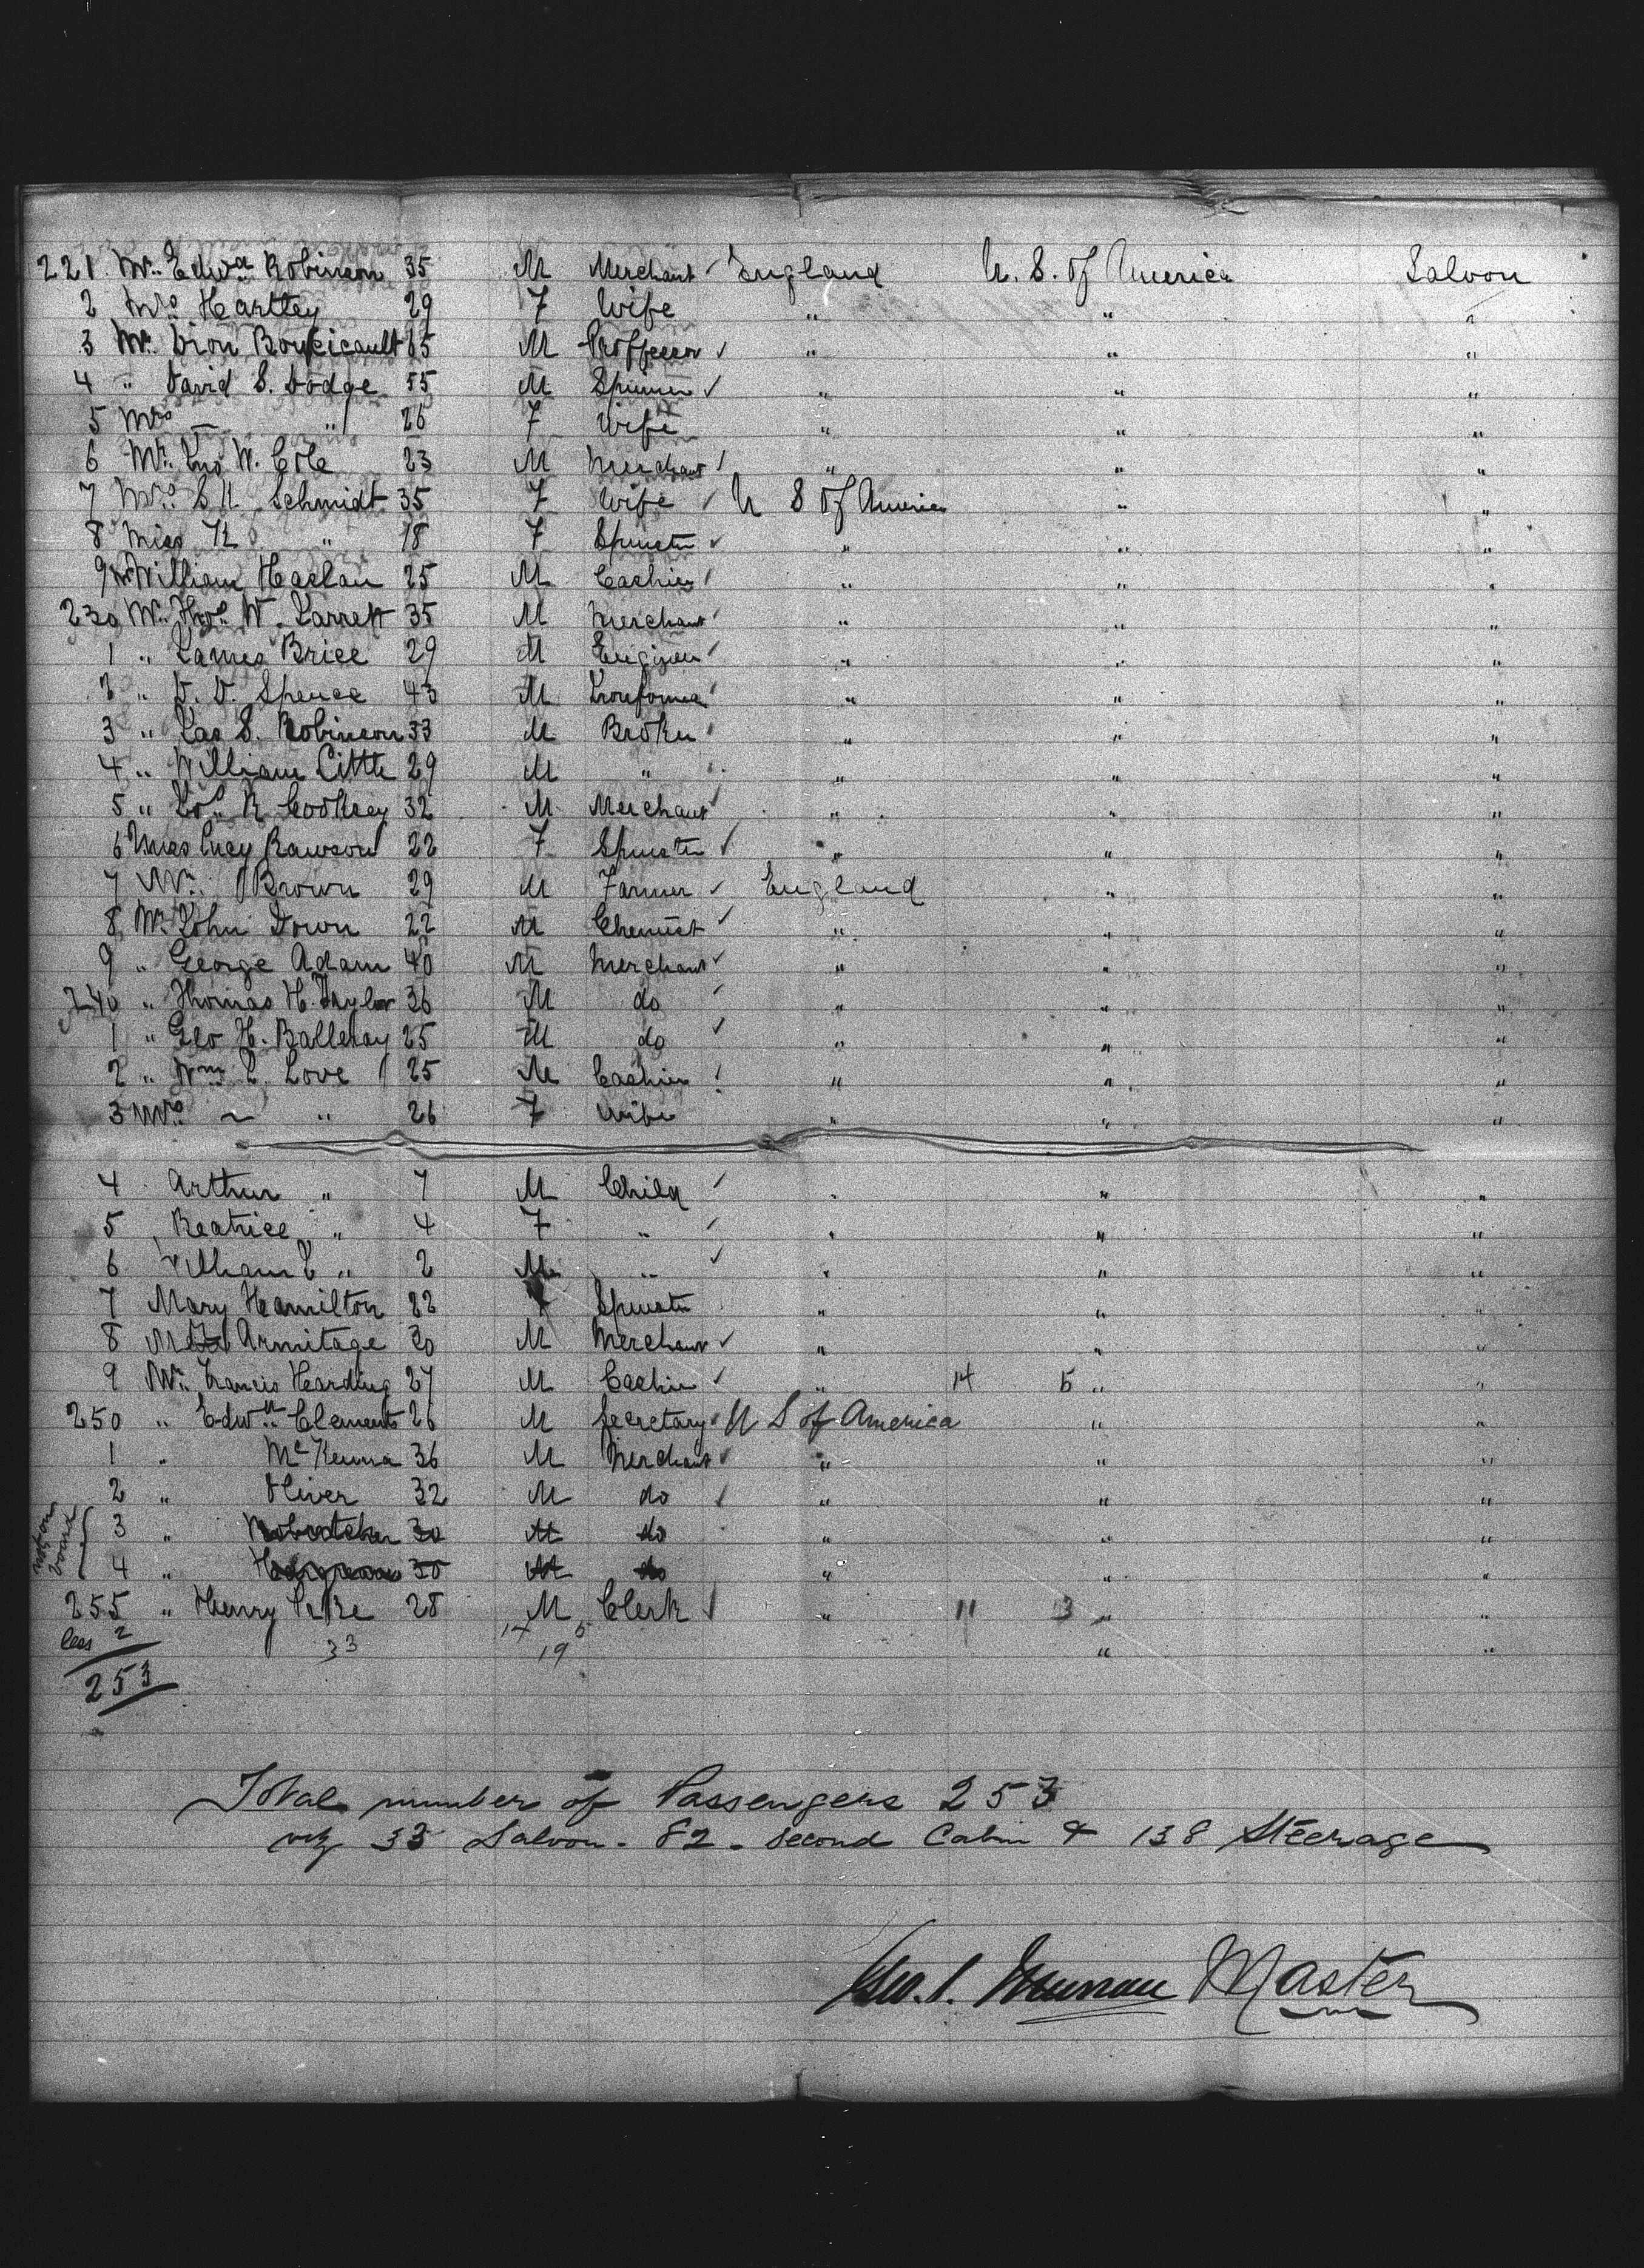 221 Mr. Edwd. Robinson 35 M Merchant ✓ England U. S. of America Saloon
2 Mrs Hartley 29 F Wife " " "
3 Mr. Dion Boucicault 65 M Proffessor ✓ " " "
4 " David S. Dodge 55 M Spinner ✓ " " "
5 Mrs — " 26 F Wife " " "
6 Mr. Jno W. Cole 23 M Merchant ✓ " " "
7 Mrs S. Schmidt 35 F Wife ✓ U S of America " "
8 Miss K " 18 F Spinster ✓ " " "
9 Mr William Haslam 25 M Cashier ✓ " " "
230 Mr. Thos. W. 35 M Merchant ✓ " " "
1 " James Brice 29 M Engineer ✓ " " "
2 " D. D. Spence 43 M " " "
3 " Jas S. Robinson 33 M Broker ✓ " " "
4 " William Little 29 M " " " "
5 " R 32 M Merchant ✓ " " "
6 Miss Lucy Rawson 22 F Spinster ✓ " " "
7 Mr. Brown 29 M Farmer ✓ England " "
8 Mr. John Down 22 M Chemist ✓ " " "
9 " George Adam 40 M Merchant ✓ " " "
240 " Thomas H. Taylor 36 M do ✓ " " "
1 " Geo H. 25 M do ✓ " " "
2 " Wm. L. Love 25 M Cashier ✓ " " "
3 Mrs ~ " 26 F Wife " " "
4 Arthur " 7 M Child ✓ " " "
5 Beatrice " 4 F " ✓ " " "
6 William L " 2 M " ✓ " " "
7 Mary Hamilton 22 F Spinster " " "
8 Mr Armitage 30 M Merchant ✓ " " "
9 Mr. Francis Harding 27 M Cashier ✓ " 14 5 " "
250 " Edwd. Clements 26 M Secretary ✓ U S of America " "
1 " McKenna 36 M Merchant ✓ " " "
2 " Oliver 32 M do ✓ " " "
not on board
3 " 30 M do " " "
4 " 30 M do " " "
255 " Henry 28 M Clerk ✓ " 11 3 " "
less 2 33 14 5 19 " "
253
Total number of Passengers 253
viz 33 Saloon - 82 - Second Cabin & 138 Steerage
Master